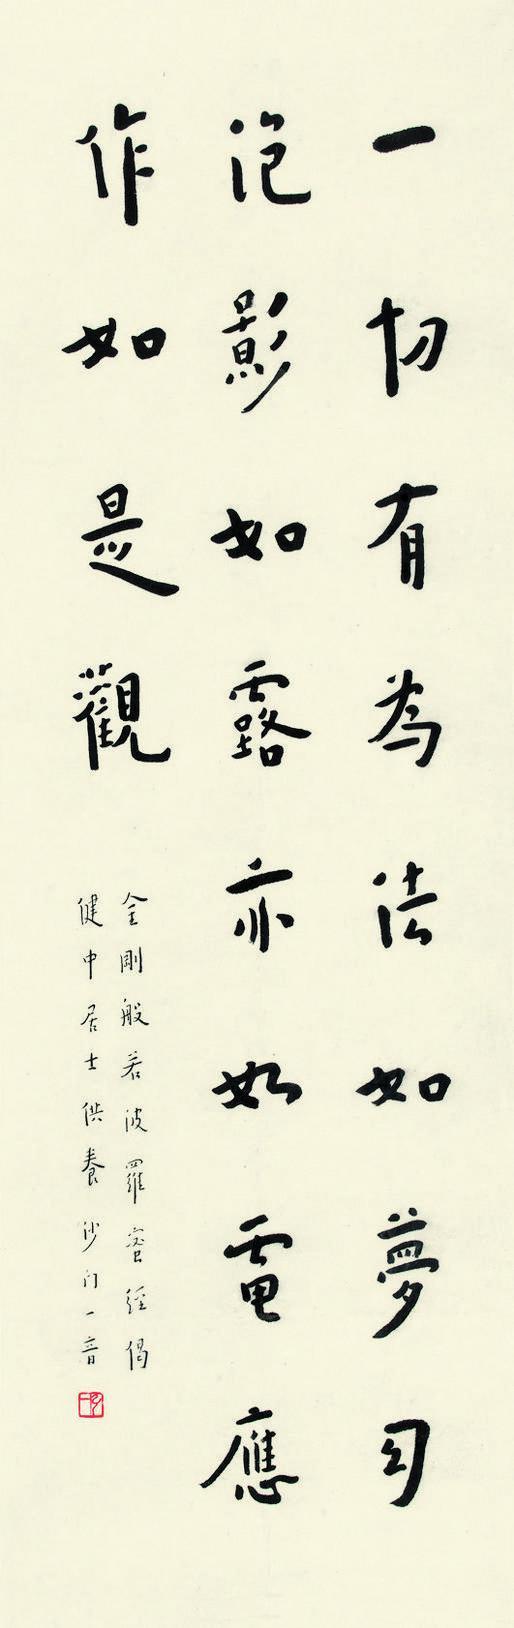 一切有為法如夢幻
泡影如露亦如電應
作如是觀
金剛般若波羅蜜經偈
健中居士供養沙门一音